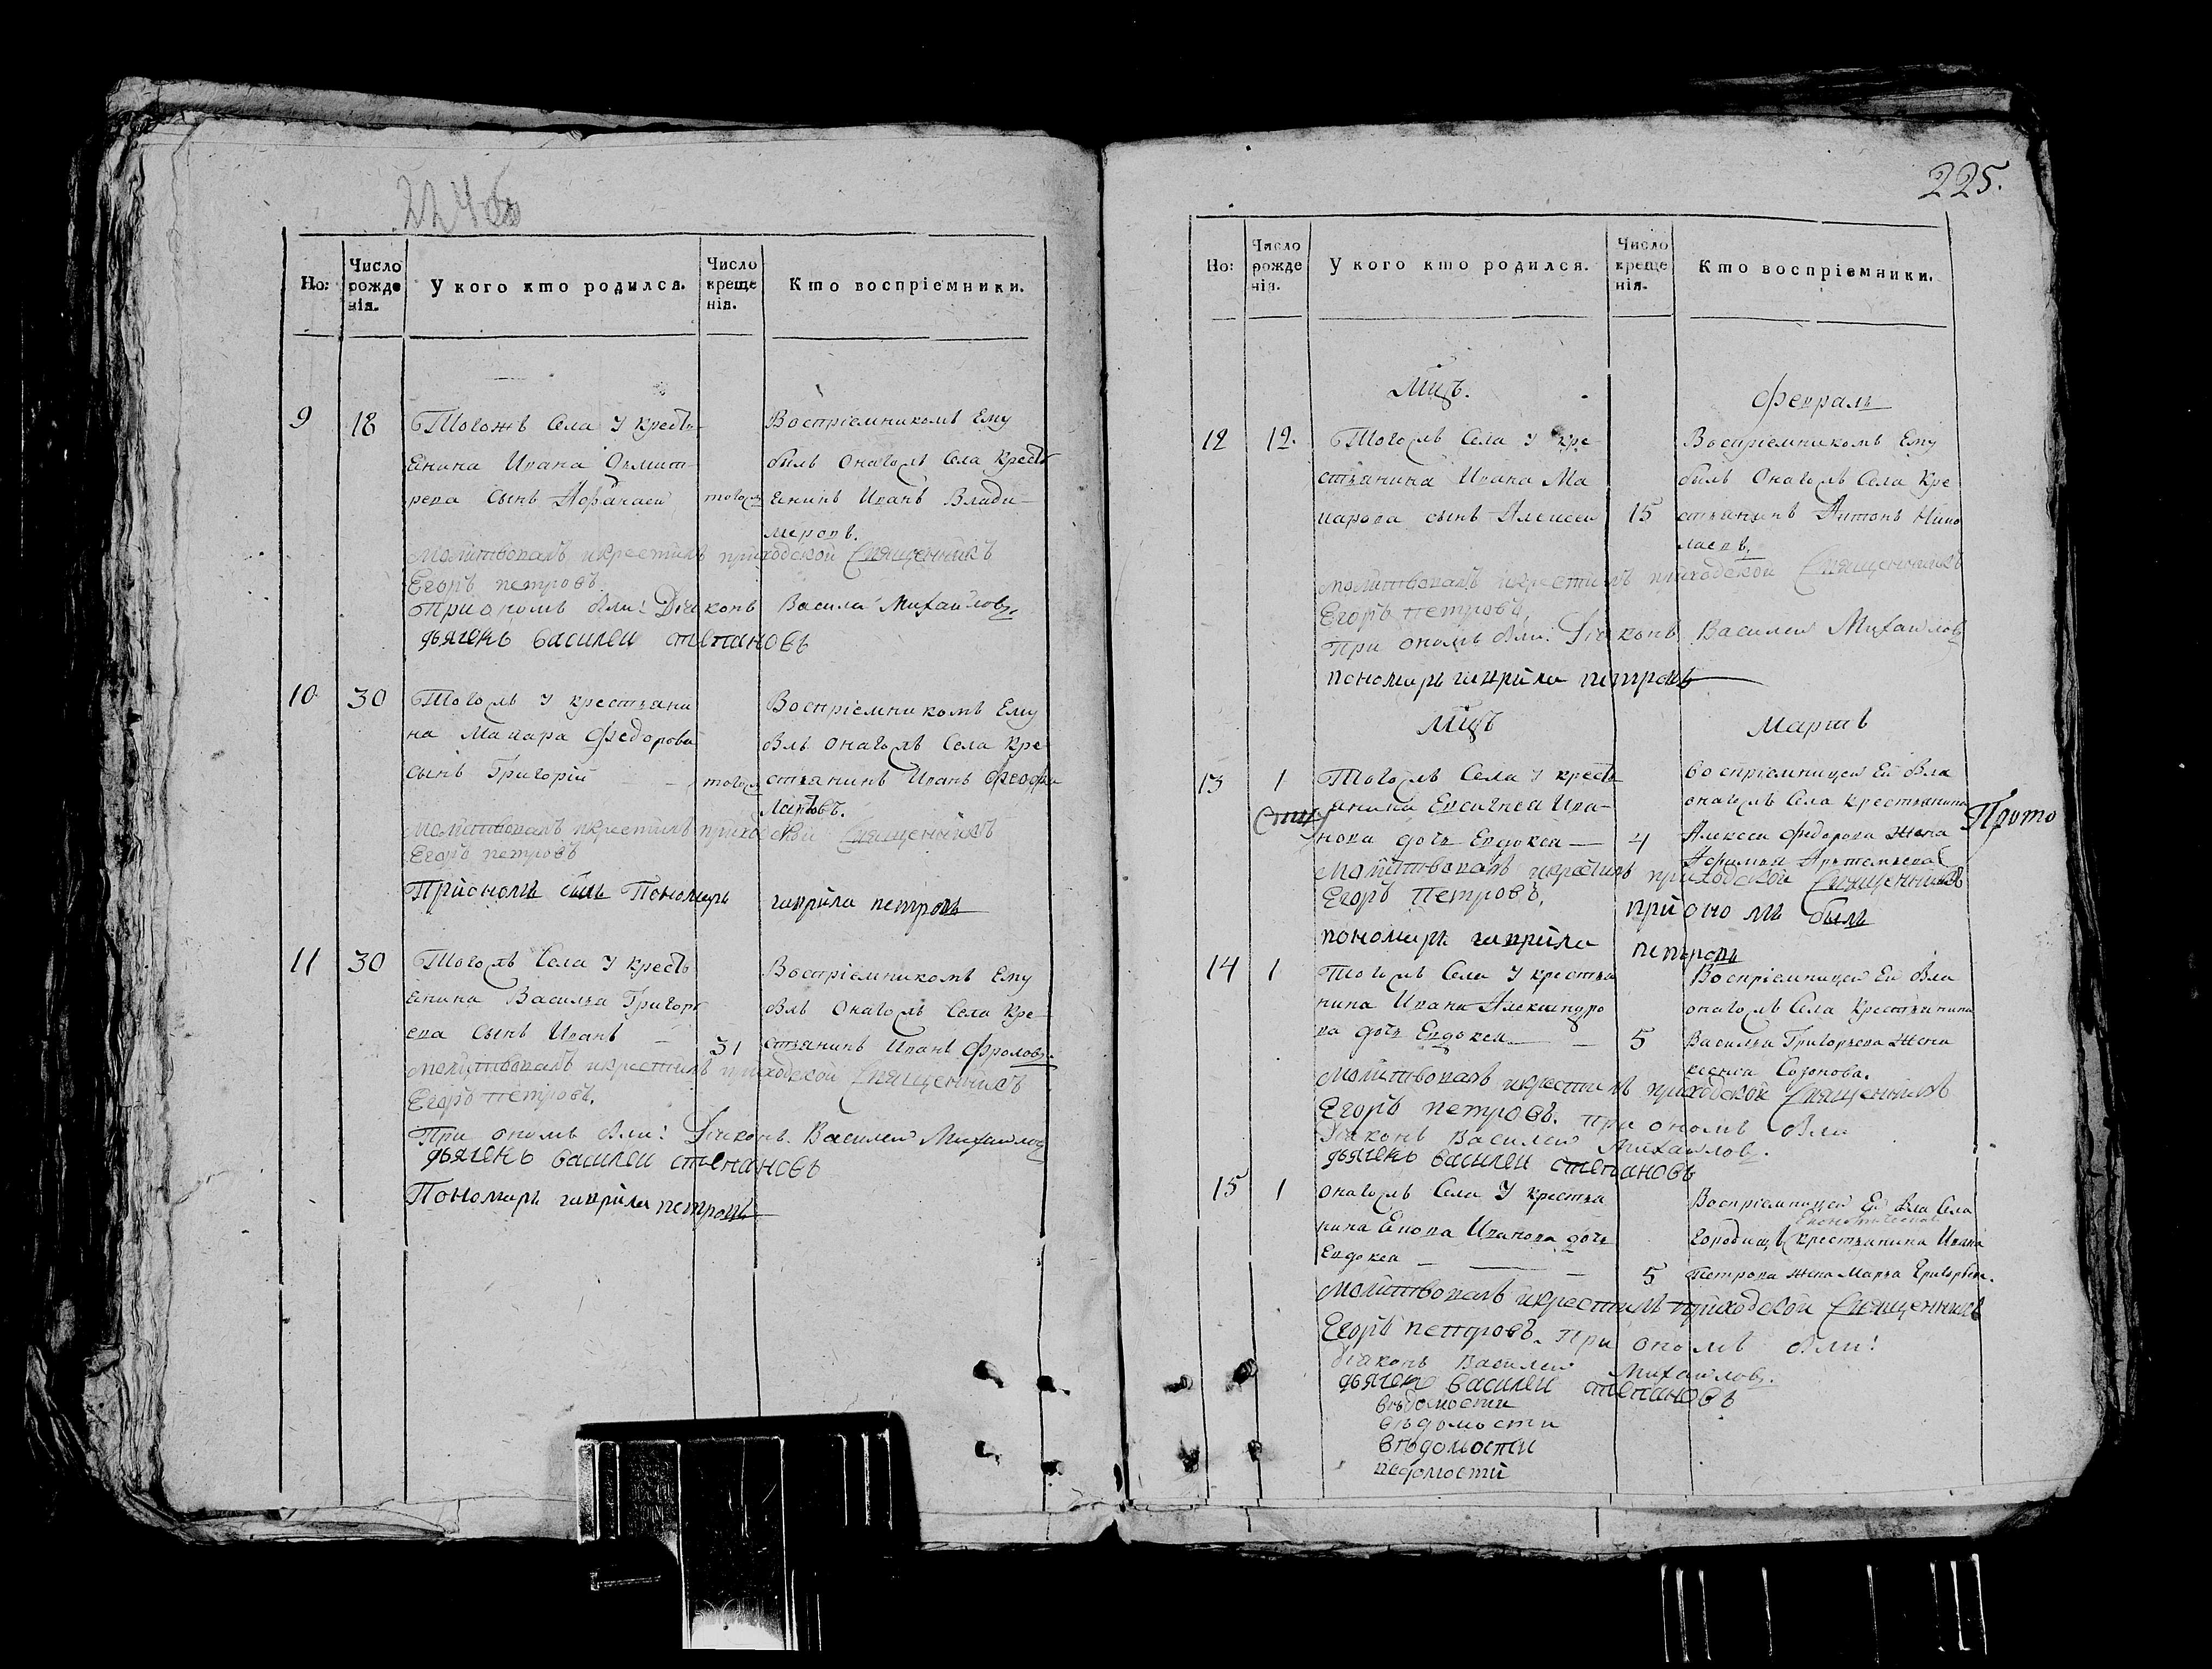 224об
Но:
Число рожде нія.
У кого кто родился.
Число креще нія.
Кто воспріемники.
9
18
Тогожъ Села У кресть
янина Ивана Дъмит
рева сынъ Афанасей
тогож
Воспріемникомъ Ему
былъ Онагожъ Села Кресть
янинъ Иванъ Влади
меровъ.
Молитвовалъ икрестилъ приходской Священникъ
Егоръ петровъ
При ономъ были: Діяконъ Василей Михайловъ.
дьячекъ василеи степановъ
10
30
Тогожъ У крестьяни
на Макара Федорова
сынъ Григорій
тогож
Воспріемникомъ Ему
былъ онагожъ Села Кре
стьянинъ Иванъ Феофи
лактовъ.
Молитвовалъ икрестилъ приходской Священникъ
Егоръ петровъ
Приономъ былъ Пономарь гаврила петровъ
11
30
Тогожъ Села У кресть
янина Василья Григорь
ева сынъ Иванъ
31
Воспріемникомъ Ему
былъ Онагожъ Села Кре
стьянинъ Иванъ Фроловъ.
Молитвовалъ икрестилъ приходской Священникъ
Егоръ петровъ.
При ономъ были: Діяконъ Василей Михайловъ
дьячекъ василеи степановъ
Пономарь гаврила петровъ
225.
Но:
Число рожде нія.
У кого кто родился.
Число креще нія.
Кто воспріемники.
Мцъ.
Февраль
12
12.
Тогожъ Села У кре
стьянина Ивана Ма
карова сынъ Алексей
15
Воспріемникомъ Ему
былъ Онагожъ Села Кре
стьянинъ Антонъ Нико
лаевъ.
молитвовалъ икрестилъ приходской Священникъ
Егоръ петровъ.
При ономъ были: Діяконъ Василей Михайловъ
пономарь гаврила петровъ
Мцъ
Мартъ
13
1
Тогожъ Села У кресть
янина Евсигнея Ива
нова дочь Евдокея
4
воспріемницей Ей была
онагожъ Села Крестьянина
Алексея Федорова жена
Афимья Артемьева
Прото
Молитвовалъ икрестилъ приходской Священникъ
Егоръ Петровъ.
при ономъ былъ
пономарь гаврила петровъ
14
1
Тогожъ Села У крестья
нина Ивана Александро
ва дочь Евдокея
5
Воспріемницей Ей была
онагожъ Села Крестьянина
Василья Григорьева жена
ксенія Созонова.
Молитвовалъ икрестилъ приходской Священникъ
Егоръ петровъ. при ономъ были
Діяконъ Василей Михайловъ.
дьячекъ василеи степановъ
15
1
онагожъ Села У крестья
нина Енова Иванова дочь
Евдокея
5
Воспріемницей Ей была Села
Городищъ крестьянина Ивана
Петрова жена Марья Григорьева.
Молитвовалъ икрестилъ приходской Священникъ
Егоръ петровъ. При ономъ были:
Діяконъ Василей Михайловъ.
дьячекъ василеи степановъ
вѣдомости
вѣдомости
вѣдомости
ведомости